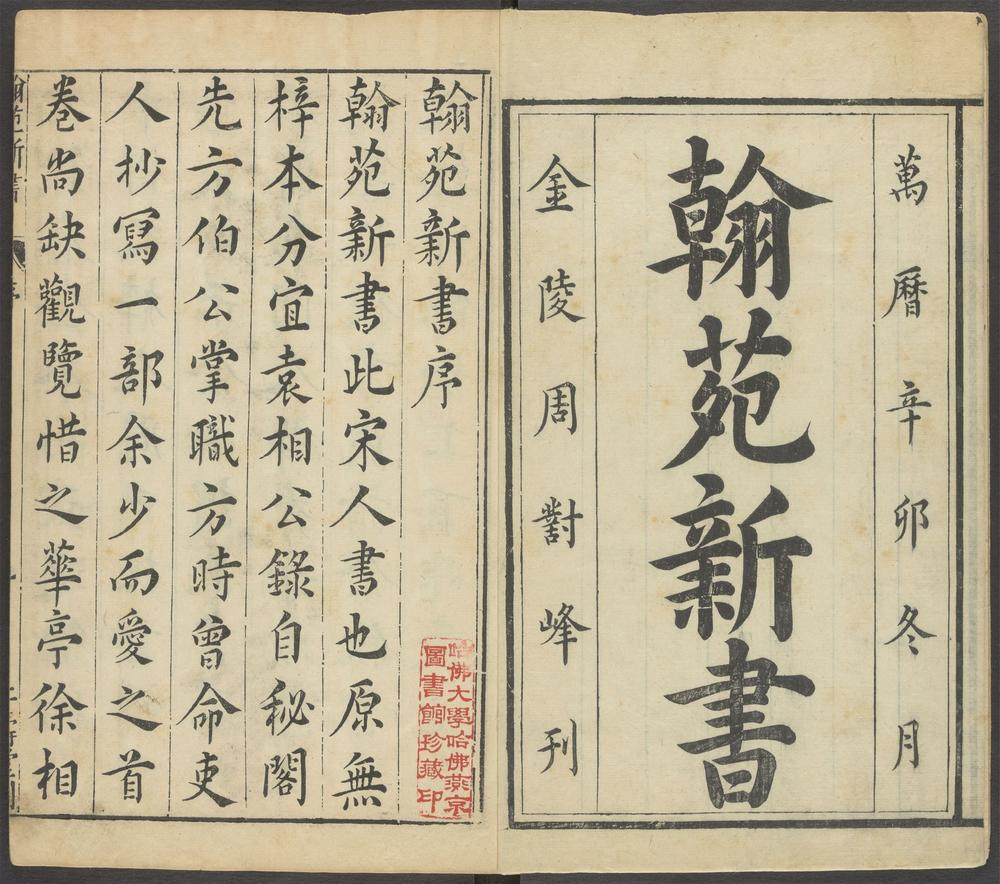 萬曆辛卯冬月
翰苑新書
金陵周對峰刊
翰苑新書序
翰苑新書此宋人書也原無
梓本分宜袁相公錄自秘閣
先方伯公掌職方時曾命吏
人抄寫一部余少而愛之首
卷尚缺觀覽惜之華亭徐相
哈佛大學哈佛燕京
圖書館珍藏印
翰苑新書
序